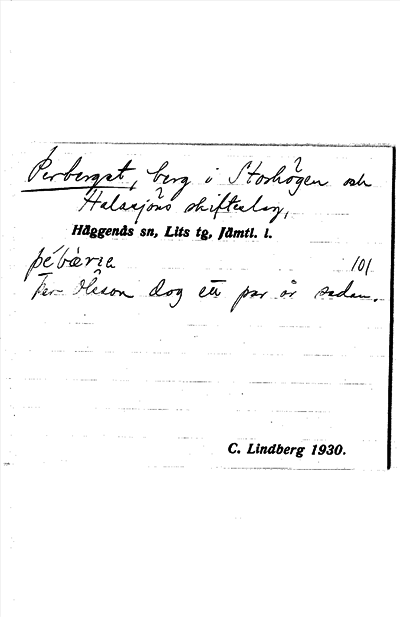 Perberget, berg i Storhögen och
Halasjöns skifteslag,
Häggenås sn, Lits tg, Jämtl. l.
pébæ̀rɛa 101
Per Olsson dog ett par år sedan.
C. Lindberg 1930.